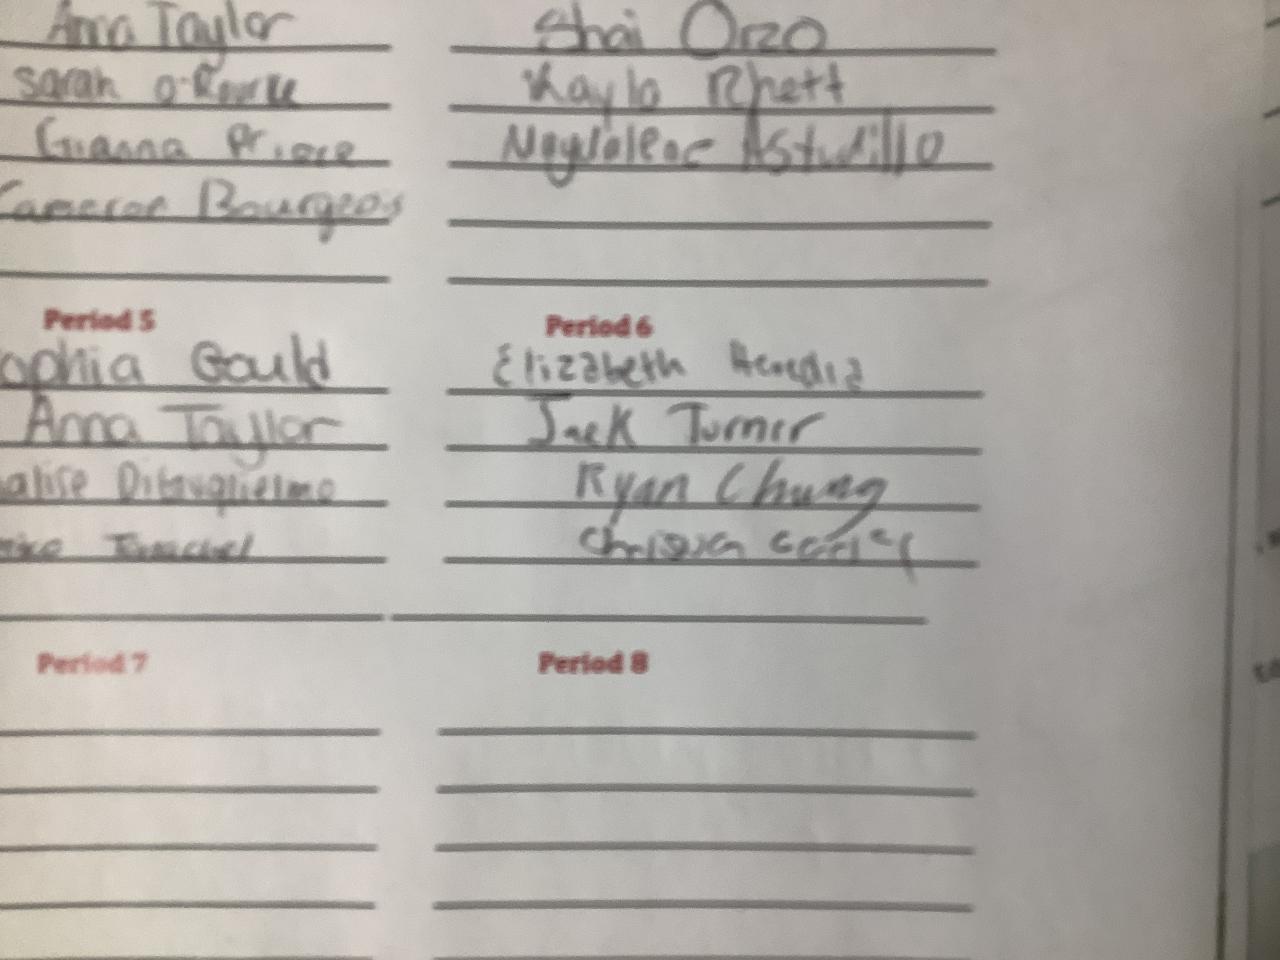 Anna Taylor
Sarah O'Rourke
Gianna
Cameron Bourgeois
Shai Orzo
Kayla Rhett
Astudillo
Period 5
ophia Gould
Anna Taylor
alise
Period 6
Elizabeth Heredia
Jack Turner
Ryan Chung
Period 7
Period 8